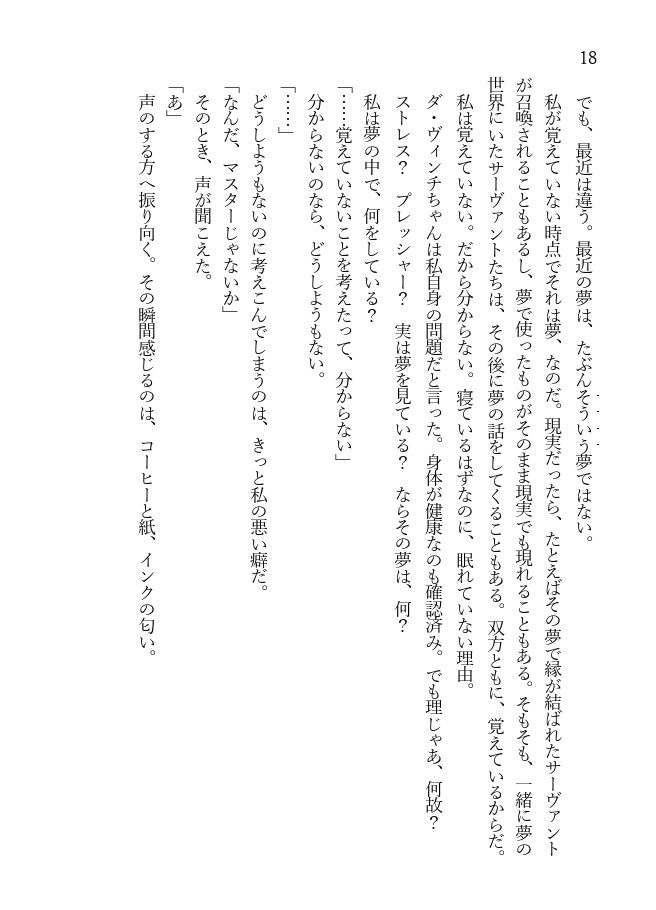 18
でも、最近は違う。最近の夢は、たぶんそういう夢ではない。
私が覚えていない時点でそれは夢、なのだ。現実だったら、たとえばその夢で縁が結ばれたサーヴァント
が召喚されることもあるし、夢で使ったものがそのまま現実でも現れることもある。そもそも、一緒に夢の
世界にいたサーヴァントたちは、その後に夢の話をしてくることもある。双方ともに、覚えているからだ。
私は覚えていない。だから分からない。寝ているはずなのに、眠れていない理由。
ダ・ヴィンチちゃんは私自身の問題だと言った。身体が健康なのも確認済み。でも理じゃあ、何故?
ストレス? プレッシャー? 実は夢を見ている? ならその夢は、何?
私は夢の中で、何をしている?
「……覚えていないことを考えたって、分からない」
分からないのなら、どうしようもない。
「……」
どうしようもないのに考えこんでしまうのは、きっと私の悪い癖だ。
「なんだ、マスターじゃないか」
そのとき、声が聞こえた。
「あ」
声のする方へ振り向く。その瞬間感じるのは、コーヒーと紙、インクの匂い。